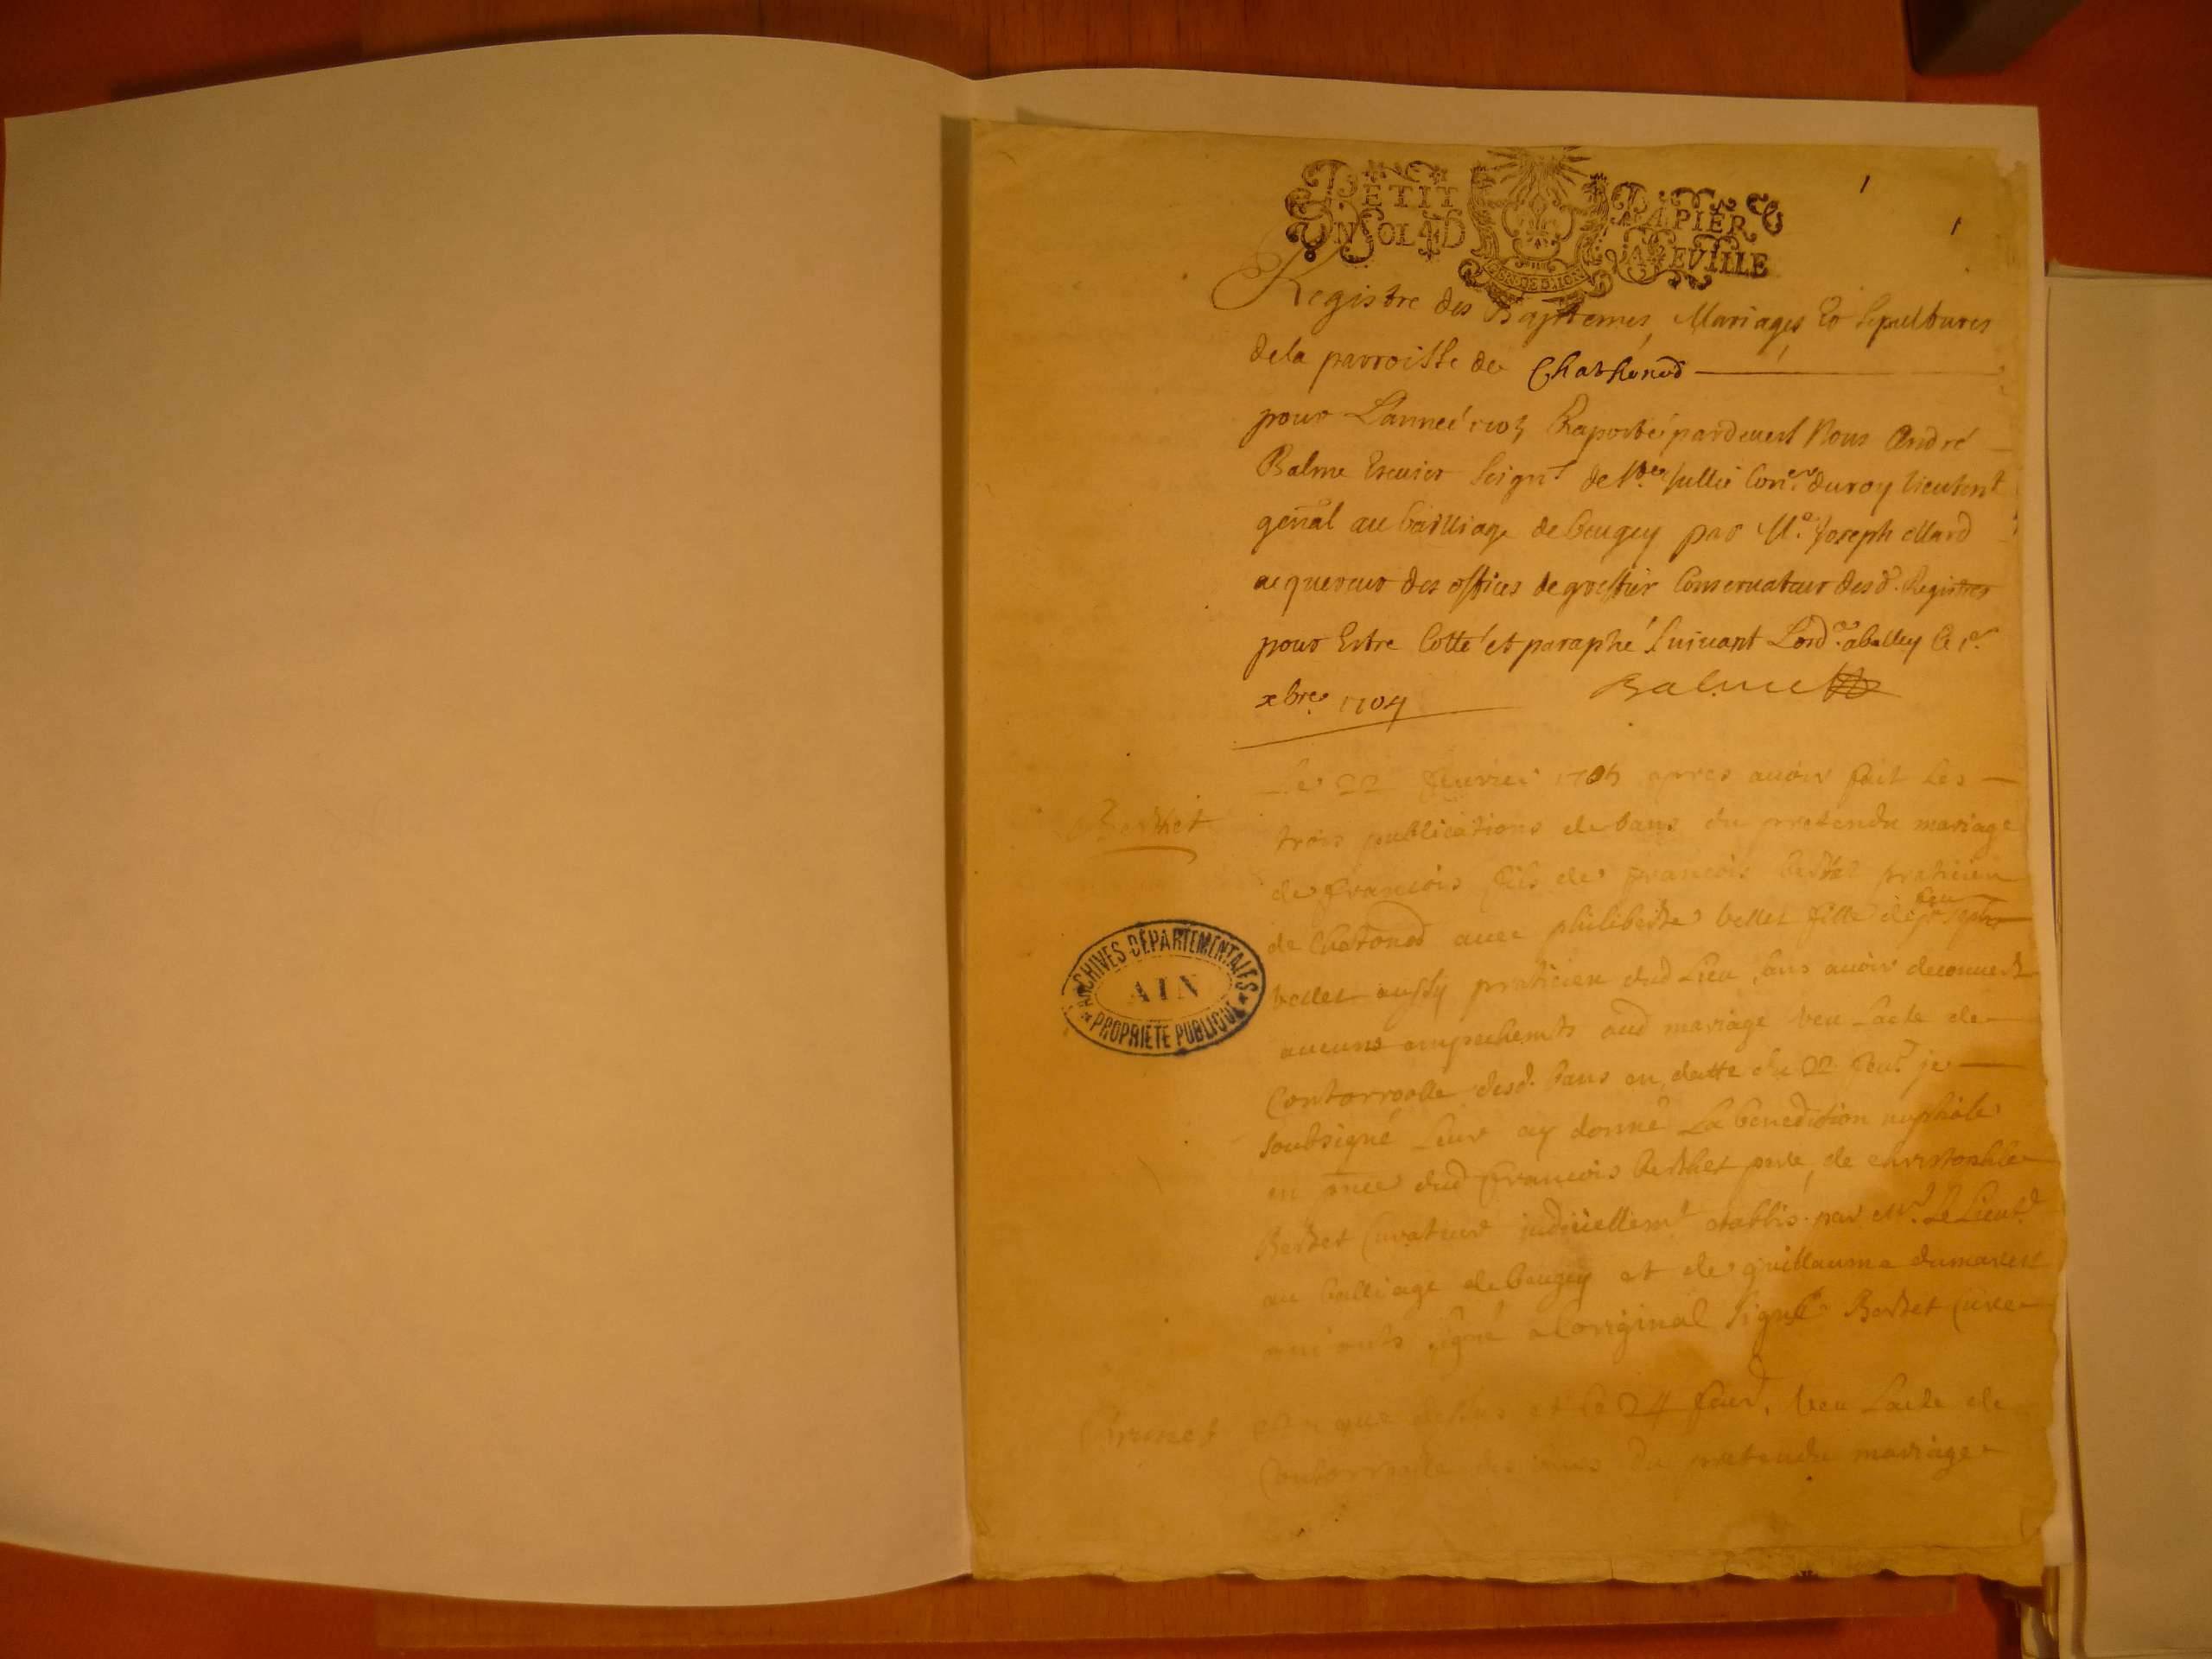 PETIT PAPIER
UN SOL 4 D LA FEVILLE
GEN. DE LION
1
1
Registre des Baptemes, Mariages Et Sepultures
de la parroisse de Chathonod
pour L'année 1705 Raporté pardevent Nous André
Balme Escuier Seignr de Stes Jullie Coner du roy lieutent
genal au bailliage de beugey par Me Joseph Mard
acquereur des offices de greffier Conservateur desd. Registres
pour Estre Cotté et paraphé Suivant Lord.ce a belley le 1er
xbre 1704 Balme
Berthet
Le 22 feuvrier 1705 apres avoir fait les
trois publications de bans du pretendu mariage
de francois fils de francois berthet praticien
de Chatonod avec philiberte vellet fille de feu joseph
vellet aussy praticien dud Lieu, sans avoir decouvert
aucuns empechemts aud mariage veu lacte de
Contorroolle desd. bans en datte du 22 feur je
soubsigné Leur ay donné La benediction nuptiale
en pnce dud francois berthet pere, de christophle
Bertet Curateur judiciellemt etablis par Mr. Le Lieut
au balliage de beugey et de guillaume dumarest
qui onts signé a Loriginal signé Bertet Cure
ARCHIVES DÉPARTEMENTALES
AIN
PROPRIÉTÉ PUBLIQUE
Brunet
que dessus et le 24 feur, veu Lacte de
Contorroolle des bans du pretendu mariage